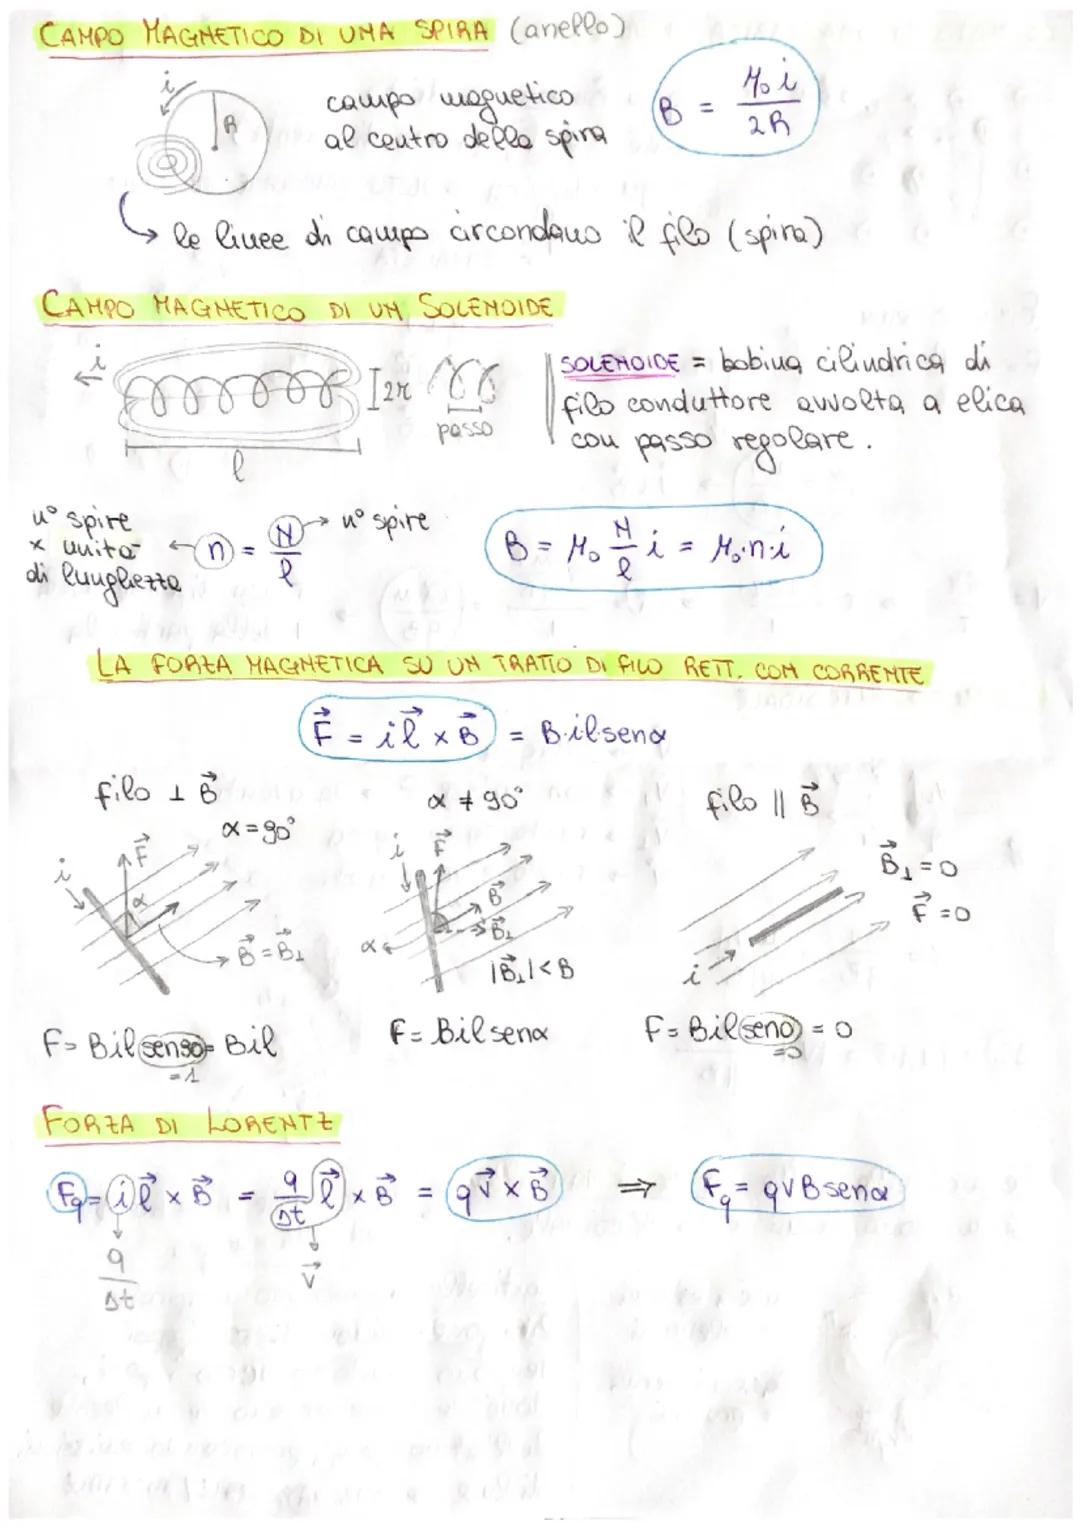 CAMPO MAGNETICO DI UNA SPIRA (anello)
i
R
campo magnetico
al centro della spira
B = μ₀ i / 2R
le linee di campo circondano il filo (spira)
CAMPO MAGNETICO DI UN SOLENOIDE
i
2r
passo
l
SOLENOIDE = bobina cilindrica di
filo conduttore avvolta a elica
con passo regolare.
n° spire
x unità
di lunghezza
n = N / l → n° spire
B = μ₀ N / l i = μ₀·n·i
LA FORZA MAGNETICA SU UN TRATTO DI FILO RETT. CON CORRENTE
F⃗ = i l⃗ × B⃗ = B·i·l·senα
filo ⊥ B⃗
α = 90°
i
F⃗
α
B⃗ = B⃗⊥
F = Bil sen90 = Bil
= 1
α ≠ 90°
i
F⃗
B⃗
B⃗⊥
α
|B⃗⊥| < B
F = Bil senα
filo || B⃗
B⃗⊥ = 0
F⃗ = 0
i
F = Bil sen0 = 0
= 0
FORZA DI LORENTZ
Fq = i l⃗ × B⃗ = q / Δt l⃗ × B⃗ = q v⃗ × B⃗ ⇒ Fq = qvB senα
q / Δt
v⃗